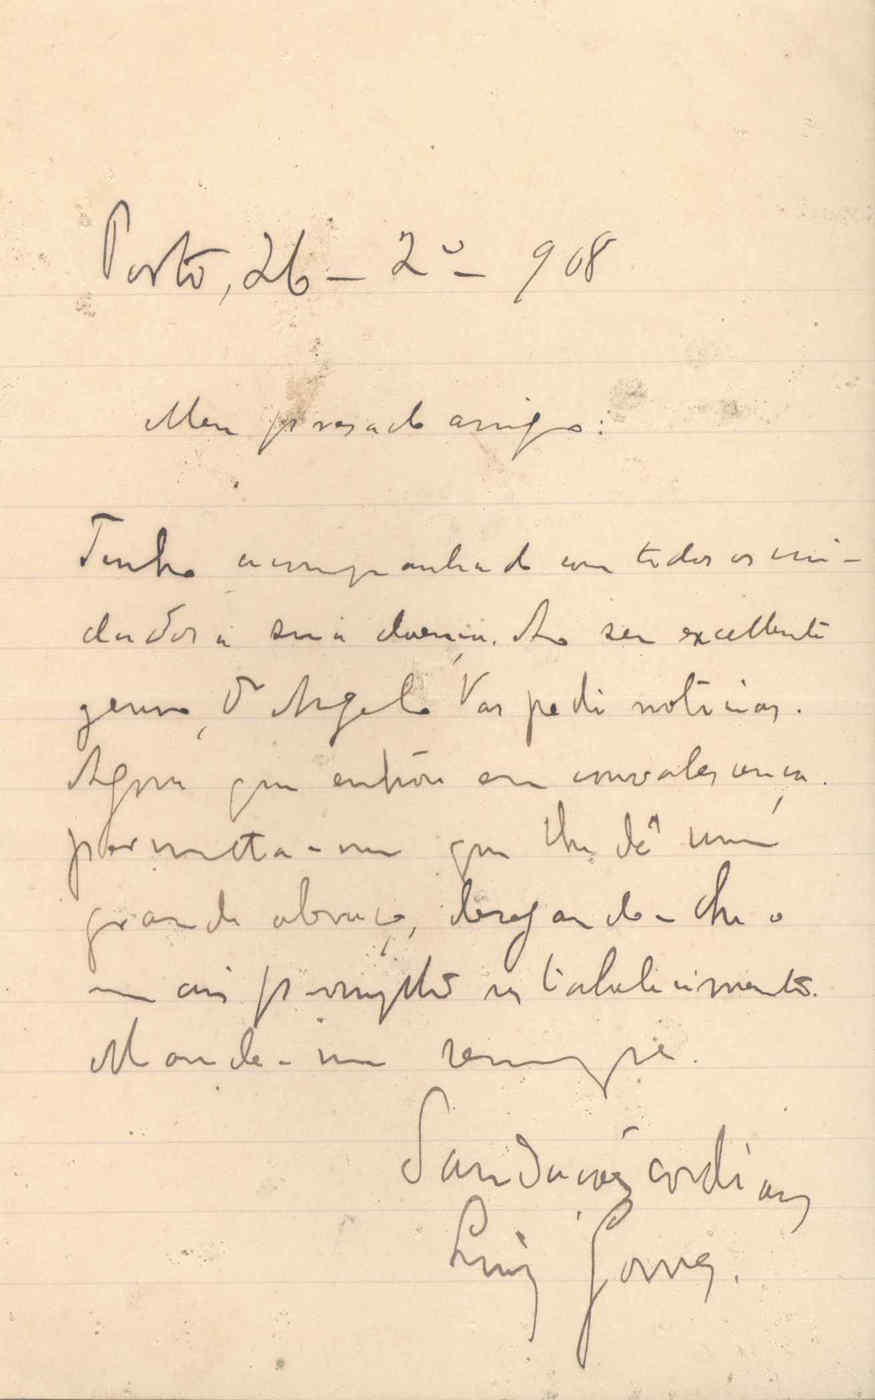 Porto, 26 - 2º - 908
Meu presado amigo:
Tenho acompanhado com todos os cui-
dados a sua doença. Ao seu excellente
genro, Dr Angelo Vaz pedi noticias.
Agora que entrou em convalescença.
permitta-me que lhe dê um
grande abraço, desejando-lhe o
mais prompto restabelecimento.
Mande-me sempre.
Saudações cordiaes
Luiz Gomes.